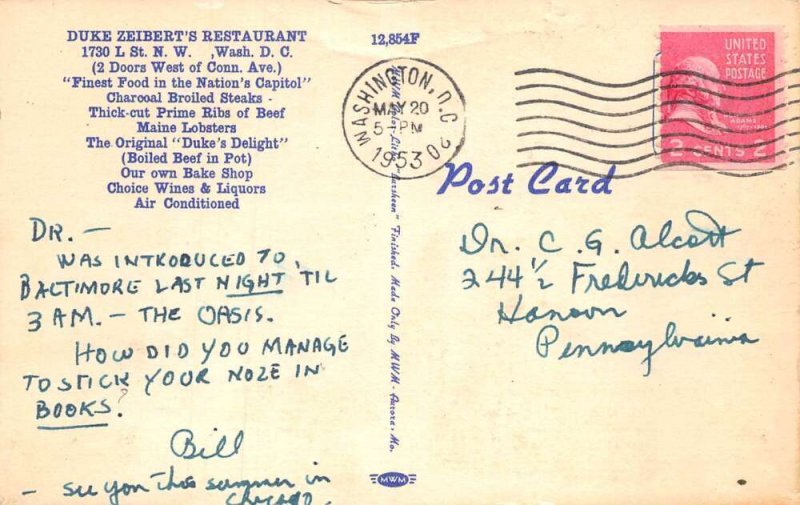 DUKE ZEIBERT'S RESTAURANT
1730 L St. N. W. ,Wash. D. C.
(2 Doors West of Conn. Ave.)
"Finest Food in the Nation's Capitol"
Charcoal Broiled Steaks -
Thick-cut Prime Ribs of Beef
Maine Lobsters
The Original "Duke's Delight"
(Boiled Beef in Pot)
Our own Bake Shop
Choice Wines & Liquors
Air Conditioned
DR. —
WAS INTRODUCED TO
BALTIMORE LAST NIGHT 'TIL
3 AM. — THE OASIS.
HOW DID YOU MANAGE
TO STICK YOUR NOZE IN
BOOKS?
Bill
— see you this summer in
Chicago.
12,854F
"Finished. Made Only By MWM - Aurora, Mo.
MWM
WASHINGTON, D.C.
MAY 20
5-PM
1953
UNITED
STATES
POSTAGE
ADAMS
2 CENTS 2
Post Card
Dr. C. G. Alcott
244½ Fredericks St
Hanover
Pennsylvania